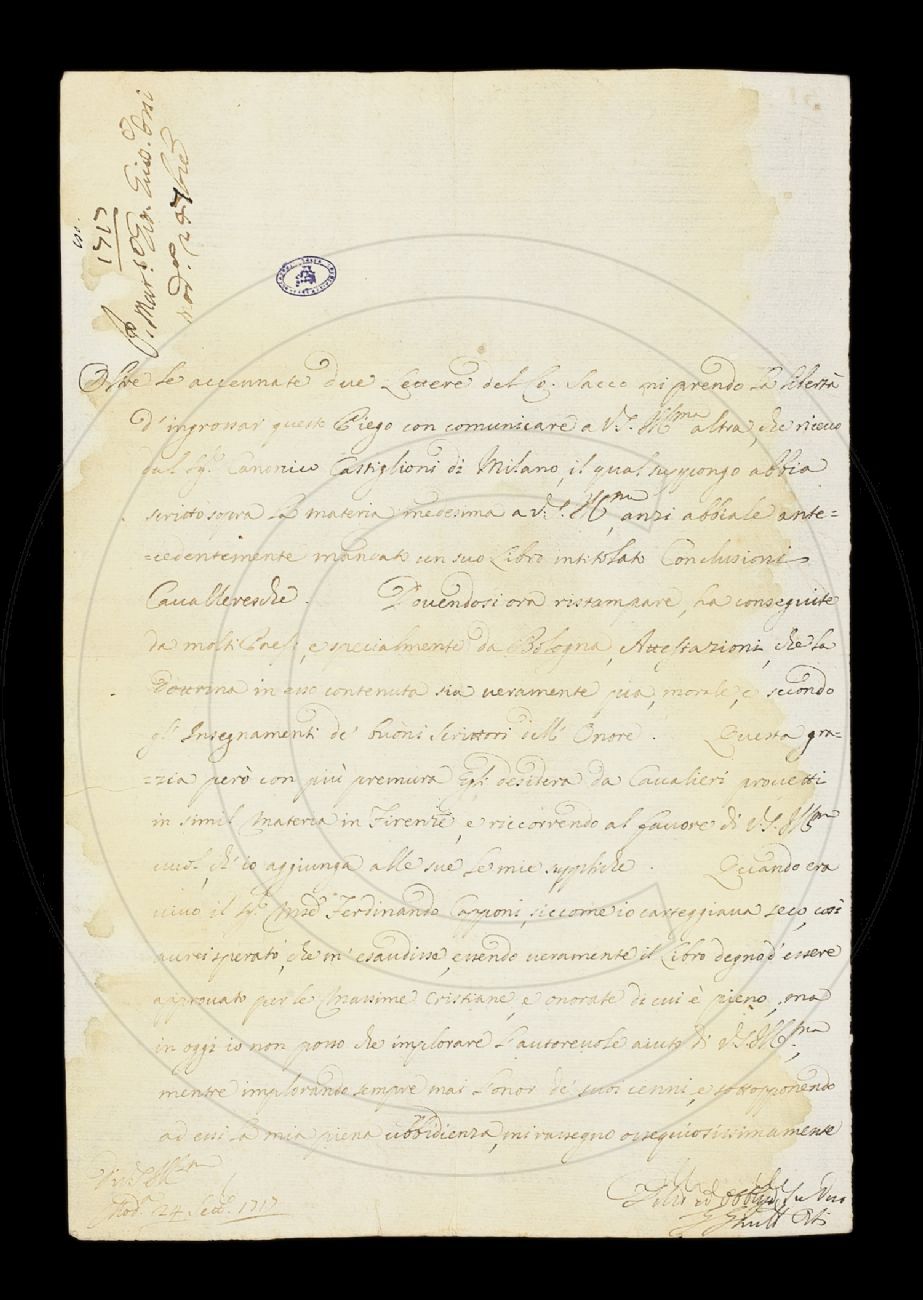 1717
Mar. Gio. Gius. Orsi
Mod. 24 7bre
Oltre le accennate due Lettere del Co. Sacco mi prendo la libertà
d'ingrossar questo Piego con comunicare a V.S. Ill.ma altra, che ricevo
dal Sig.r Canonico Castiglioni di Milano, il qual suppongo abbia
scritto sopra la materia medesima a V.S. Ill.ma, anzi abbiale ante=
=cedentemente mandato un suo Libro intitolato Conclusioni
Cavalleresche. Dovendosi ora ristampare, ha conseguite
da molti Paesi, e specialmente da Bologna, Attestazioni, che la
Dottrina in esso contenuta sia veramente pia, morale, e secondo
gl'Insegnamenti de' buoni Scrittori dell'Onore. Questa gra=
=zia però con più premura Egli desidera da Cavalieri provetti
in simil materia in Firenze, e riccorrendo al favore di V.S. Ill.ma
vuol, ch'io aggiunga alle sue le mie suppliche. Quando era
vivo il Sig.r March.e Ferdinando Capponi, siccome io carteggiava seco, così
avrei sperato, che m'esaudisse, essendo veramente il Libro degno d'essere
approvato per le Massime Cristiane, e onorate di cui è pieno, ma
in oggi io non posso che implorare l'autorevole aiuto di V.S. Ill.ma,
mentre implorando sempre mai l'onor de' suoi cenni, e sottopponendo
ad essi la mia piena ubbidienza, mi rassegno ossequiosissimamente
Di V.S. Ill.ma
Mod.a 24 Sett. 1717